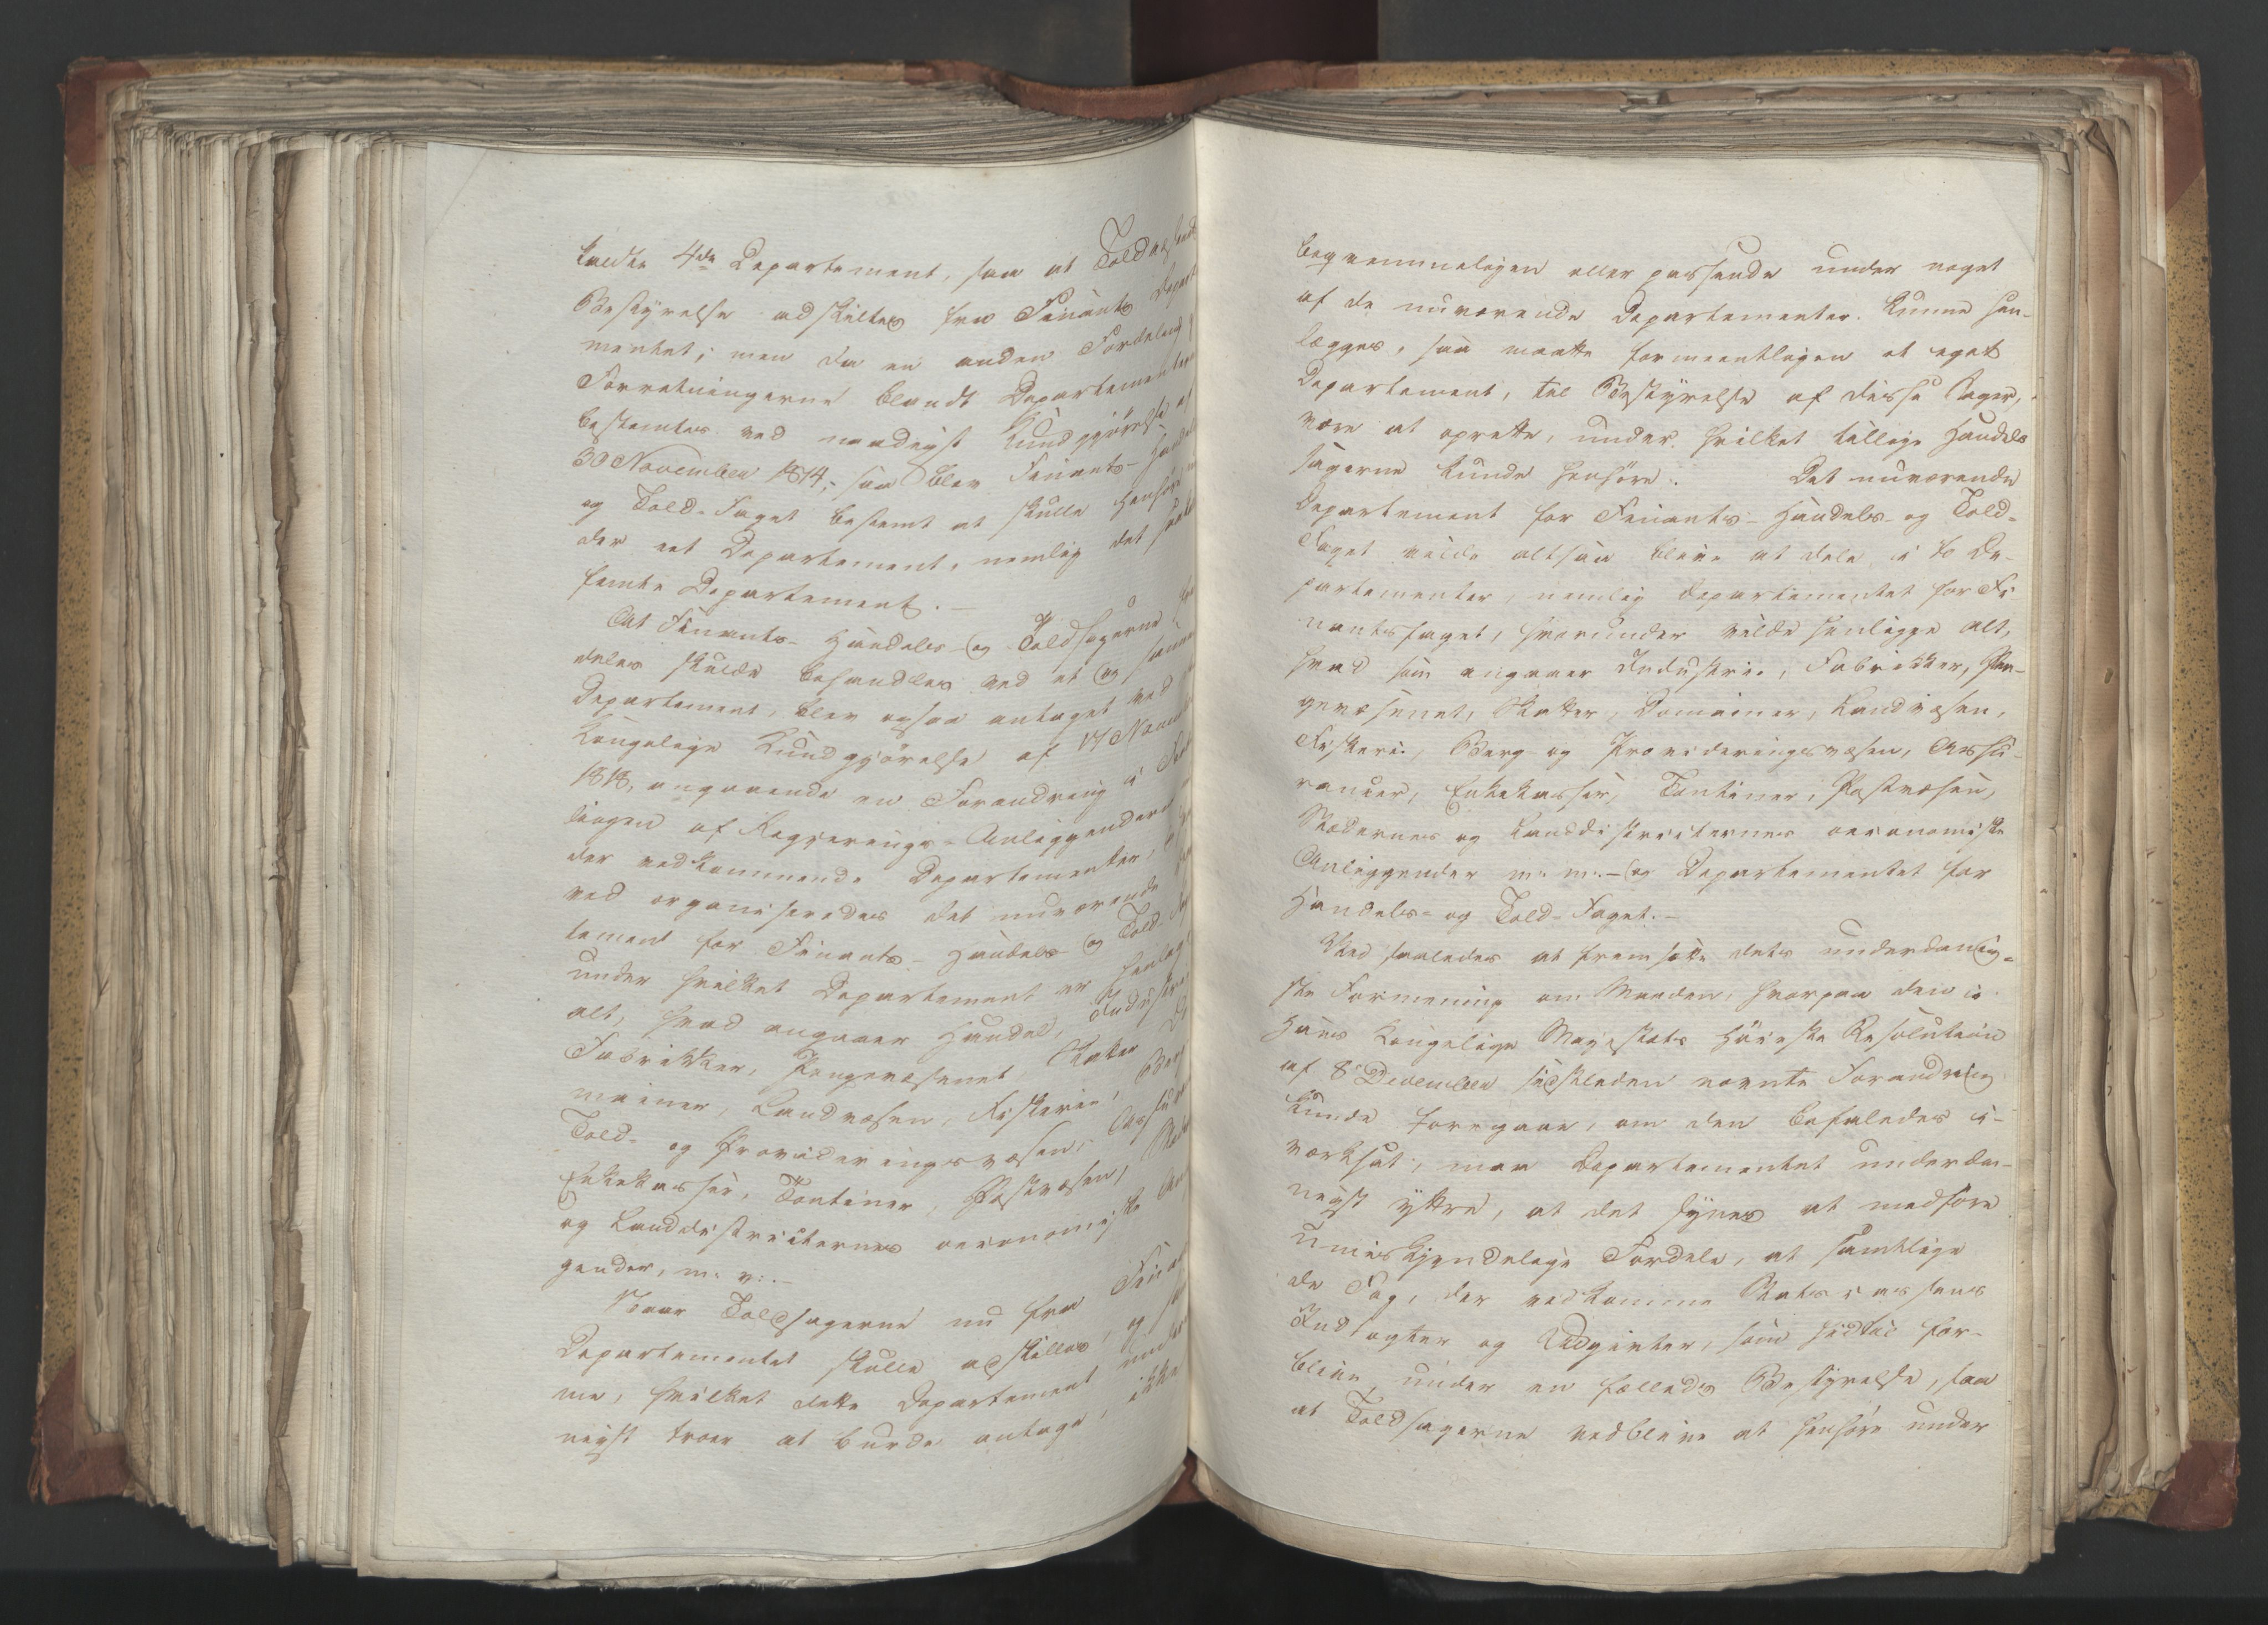 kaldte 4de Departement, saa at Toldvæsenets
Bestyrelse adskiltes fra Finants Depart
mentet; men da en anden Fordeling
Forretningerne blandt Departementerne
bestemtes ved naadigst Kundgjørelse af
30 November 1814, saa blev Finants-
og Told-Faget bestemt at skulle henhøre
der eet Departement, nemlig det
femte Departement. –
At Finants- Handels- og Toldsagerne
deles skulde behandles ved et og samme
Departement, blev ogsaa antaget ved
Kongelige Kundgjørelse af 17 Novem
1818, angaaende en Forandring i
lingen af Regjerings-Anliggenderne
der vedkommende Departementer,
ved organiseredes det nuværende
tement for Finants- Handels- og Told-
under hvilket Departement er henlagt
alt, hvad angaaer Handel, Industrie
Fabrikker, Pengevæsenet, Skatter Do
mainer, Landvæsen, Fiskerie, Berg
Told- og Provideringsvæsen, Assur
Enkekasser, Tontiner, Postvæsen,
og Landdistricternes oeconomiske An
gender, m: v:. –
Naar Toldsagerne nu fra Finants
Departementet skulle adskilles, og
me, hvilket dette Departement under
nigst troer at burde antage, ikke
beqvemmeligen eller passende under noget
af de nuværende Departementer kunne hen-
lægges, saa maatte formeentligen et eget
Departement, til Bestyrelse af disse Sager,
være at oprette, under hvilket tillige Handels
sagerne kunde henhøre. Det nuværende
Departement for Finants- Handels- og Told-
Faget vilde altsaa blive at dele i to De-
partementer, nemlig Departementet for Fi
nantsfaget, hvorunder vilde henligge alt,
hvad som angaaer Industrie, Fabrikker, Pen-
gevæsenet, Skatter, Domainer, Landvæsen,
Fiskerie, Berg- og Provideringsvæsen, Assu-
rancer, Enkekasser, Tontiner, Postvæsen,
Stædernes og Landdistricternes oeconomiske
Anliggender m: m:. – og Departementet for
Handels- og Told-Faget. –
Ved saaledes at fremsætte dets underdanig-
ste Formening om Maaden, hvorpaa den i
Hans Kongelige Majestæts Høieste Resolution
af 8 December sidstleden nævnte Forandring
kunde foregaae, om den befaledes i-
værksat, maa Departementet underda-
nigst yttre, at det synes at medføre
umiskjendelige Fordele, at samtlige
de Fag, der vedkomme Statscassens
Indtægter og Udgivter, som hidtil for-
blive under en fælleds Bestyrelse, saa
at Toldsagerne vedblive at henhøre under